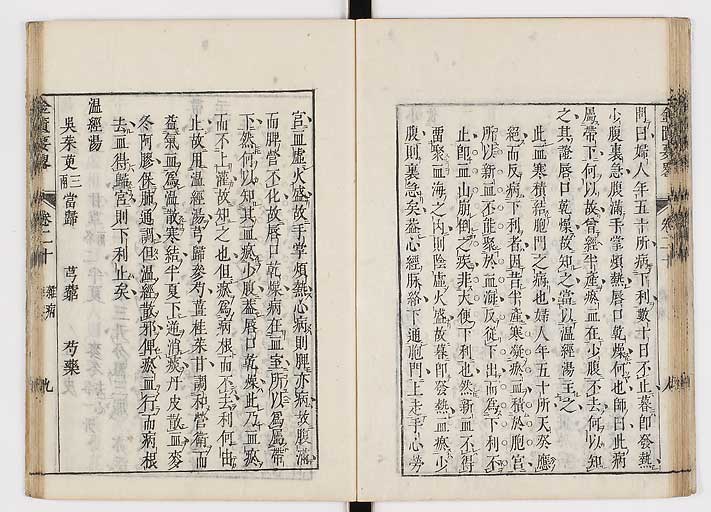 問曰婦人年五十所病下利數十日不止暮即發熱
少腹裏急腹滿手掌煩熱唇口乾燥何也師曰此病
屬帶下何以故曾經半產瘀血在少腹不去何以知
之其證唇口乾燥故知之當以温經湯主之
此血寒積結胞門之病也婦人年五十所天癸應
絕而反病下利者因昔半產寒凝瘀血積於胞宮
所以新血不能聚於血海反從下出而為下利不
止即血山崩倒之疾非大便下利也然新血不得
留聚血海之内則陰虛火盛故暮即發熱血瘀少
腹則裏急矣蓋心經脉絡下通胞門上走手心勞
宮血虛火盛故手掌煩熱心病則脾亦病故腹滿
而脾營不化故唇口乾燥病在血室所以為屬帶
下然何以知其血瘀少腹蓋唇口乾燥此乃血瘀
而不上濡故知之也但瘀為病根而不去利何由
止故用温經湯芎歸參芍薑桂朱甘調和營衛而
益氣血為温散寒結半夏下逆消痰丹皮散血麥
冬阿膠保肺通調但温經散邪俾瘀血行而病根
去血得歸宮則下利止矣
温經湯
吳茱萸三兩 當歸 芎藭 芍藥
金匱要略 卷二十 雜病 九